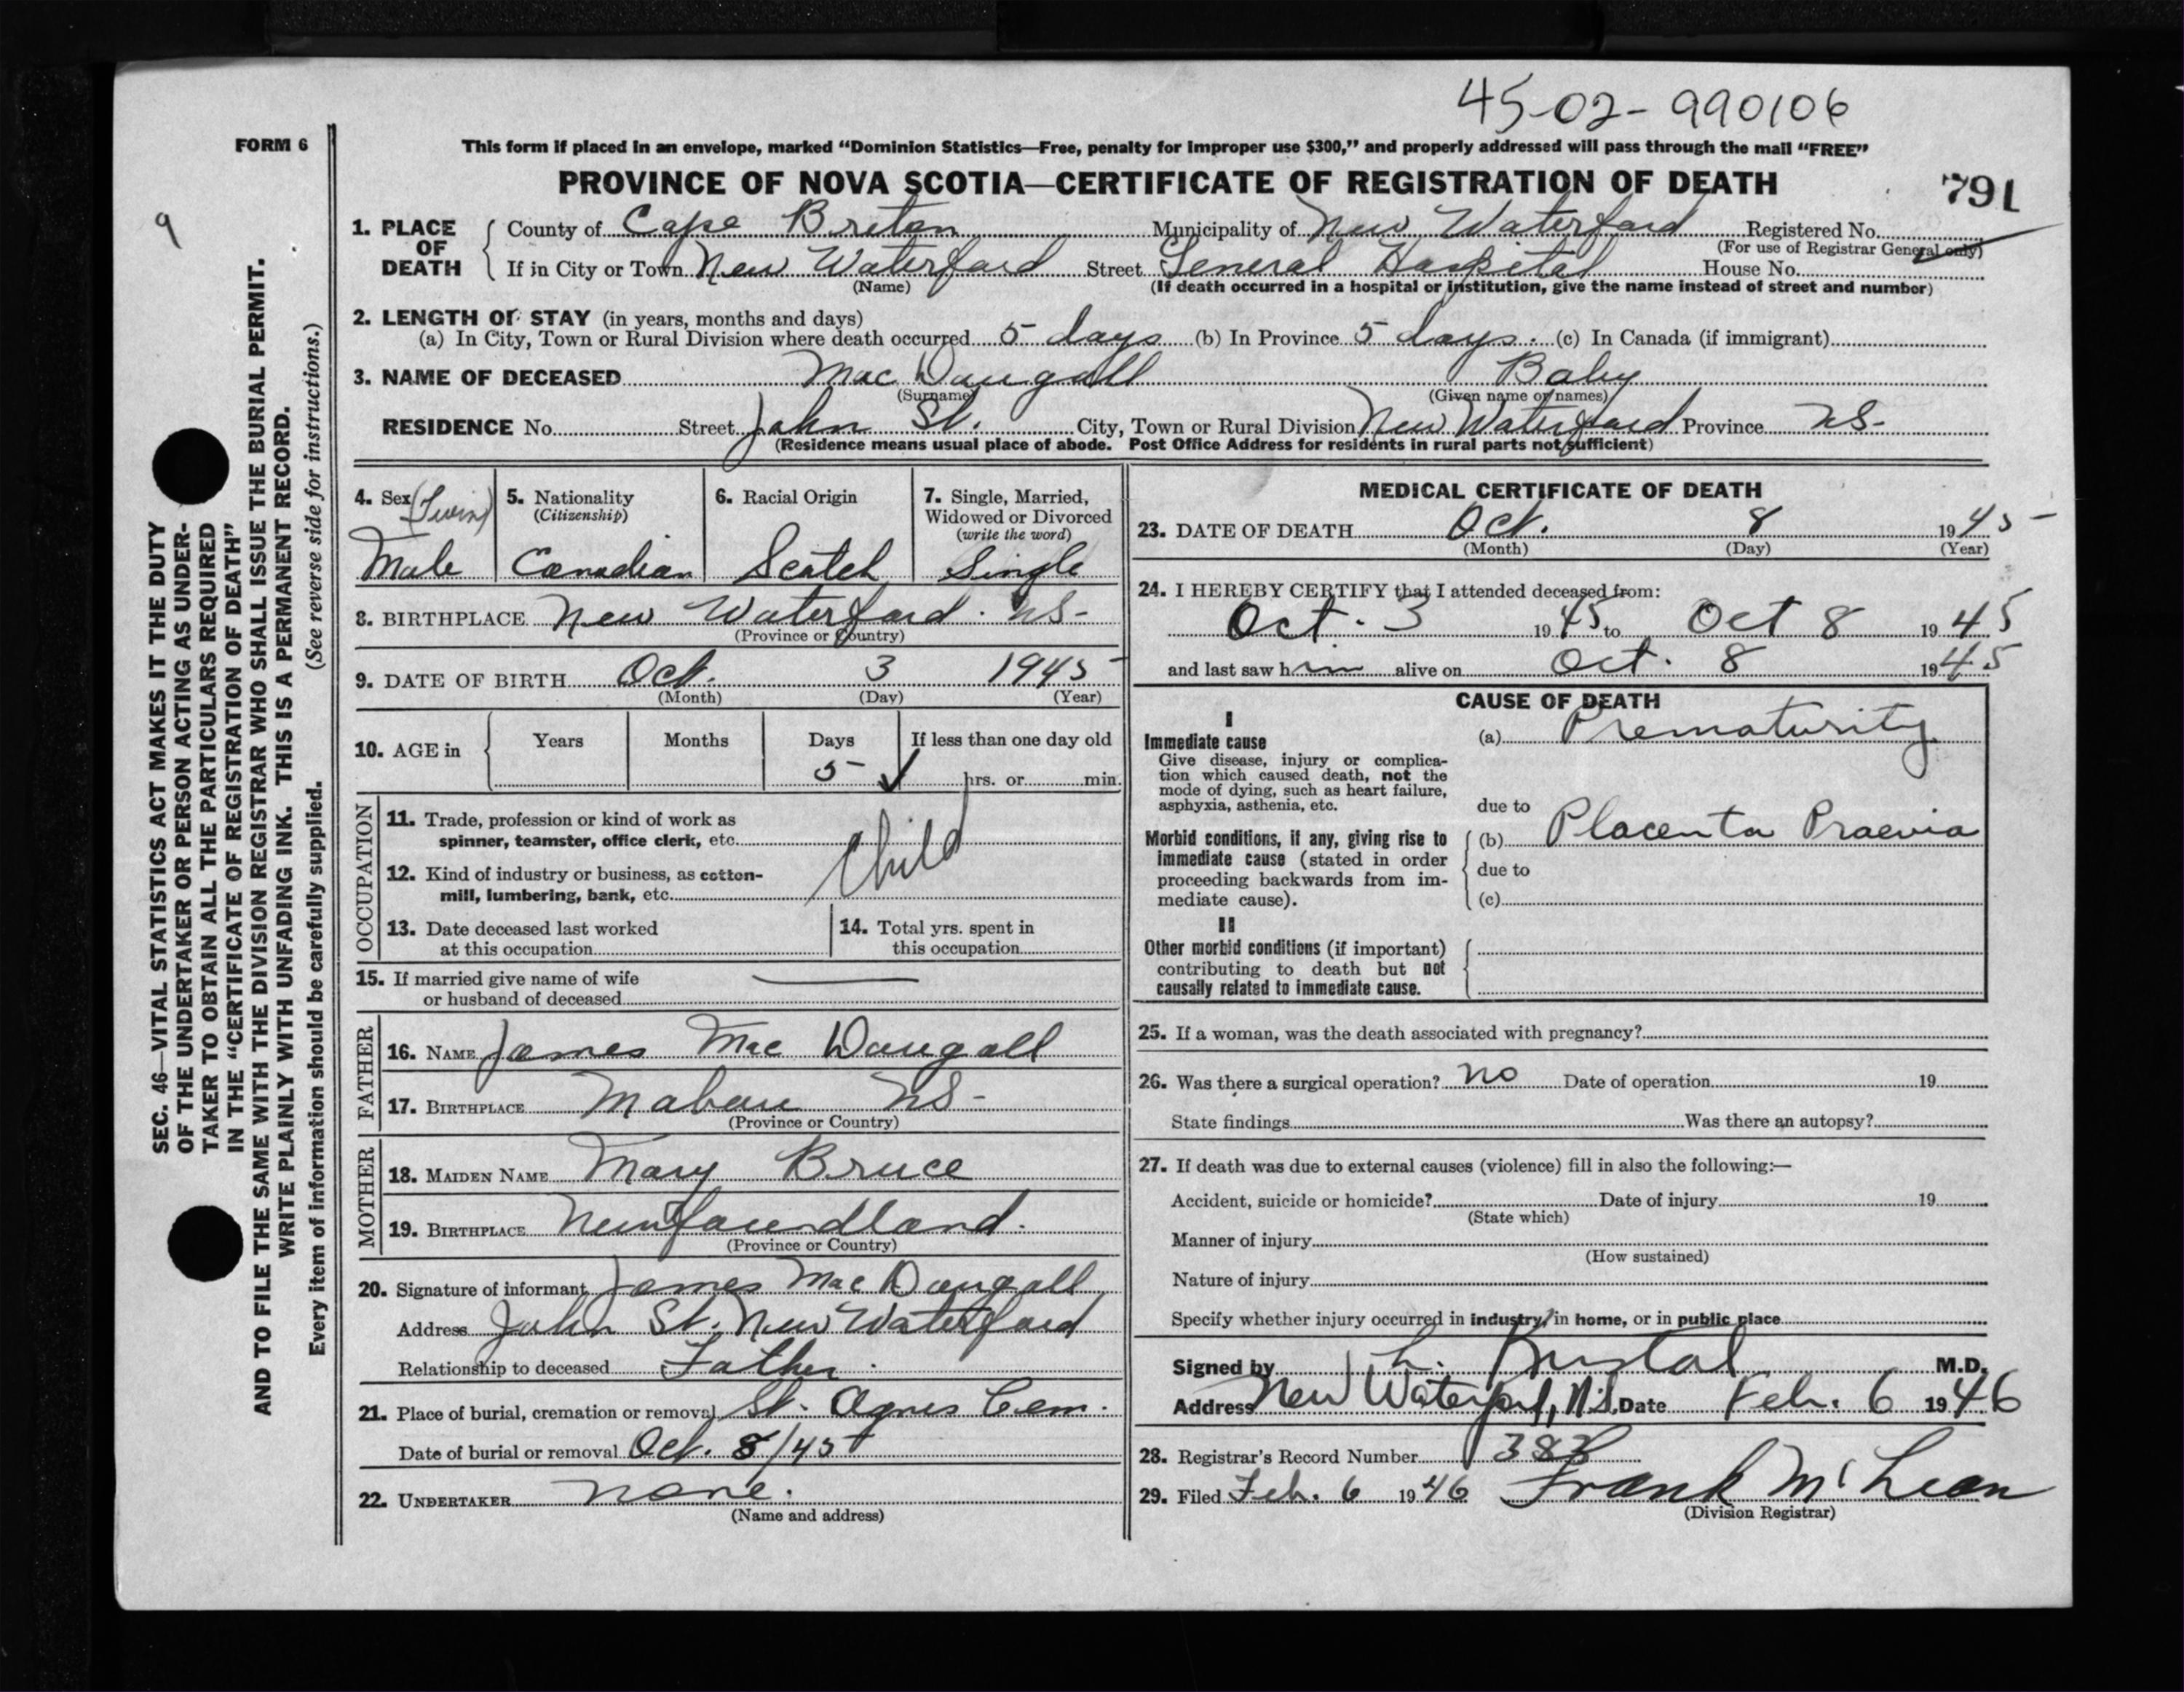 45-02-990106
FORM 6
This form if placed in an envelope, marked “Dominion Statistics—Free, penalty for improper use $300,” and properly addressed will pass through the mail “FREE”
PROVINCE OF NOVA SCOTIA—CERTIFICATE OF REGISTRATION OF DEATH
791
9
SEC. 46—VITAL STATISTICS ACT MAKES IT THE DUTY
OF THE UNDERTAKER OR PERSON ACTING AS UNDER-
TAKER TO OBTAIN ALL THE PARTICULARS REQUIRED
IN THE “CERTIFICATE OF REGISTRATION OF DEATH”
AND TO FILE THE SAME WITH THE DIVISION REGISTRAR WHO SHALL ISSUE THE BURIAL PERMIT.
WRITE PLAINLY WITH UNFADING INK. THIS IS A PERMANENT RECORD.
Every item of information should be carefully supplied. (See reverse side for instructions.)
1. PLACE OF DEATH
County of Cape Breton Municipality of New Waterford Registered No.
(For use of Registrar General only)
If in City or Town New Waterford Street General Hospital House No.
(Name) (If death occurred in a hospital or institution, give the name instead of street and number)
2. LENGTH OF STAY (in years, months and days)
(a) In City, Town or Rural Division where death occurred 5 days (b) In Province 5 days. (c) In Canada (if immigrant)
3. NAME OF DECEASED Mac Dougall Baby
(Surname) (Given name or names)
RESIDENCE No. Street John St. City, Town or Rural Division New Waterford Province NS-
(Residence means usual place of abode. Post Office Address for residents in rural parts not sufficient)
4. Sex (Twin)
Male
5. Nationality
(Citizenship)
Canadian
6. Racial Origin
Scotch
7. Single, Married,
Widowed or Divorced
(write the word)
Single
8. BIRTHPLACE New Waterford. NS-
(Province or Country)
9. DATE OF BIRTH Oct. 3 1945
(Month) (Day) (Year)
10. AGE in
Years Months Days If less than one day old
5 ✓ hrs. or min.
OCCUPATION
11. Trade, profession or kind of work as
spinner, teamster, office clerk, etc.
Child
12. Kind of industry or business, as cotton-
mill, lumbering, bank, etc.
13. Date deceased last worked
at this occupation
14. Total yrs. spent in
this occupation
15. If married give name of wife
or husband of deceased —
FATHER
16. NAME James Mac Dougall
17. BIRTHPLACE Mabou NS-
(Province or Country)
MOTHER
18. MAIDEN NAME Mary Bruce
19. BIRTHPLACE Newfoundland.
(Province or Country)
20. Signature of informant James Mac Dougall
Address John St. New Waterford
Relationship to deceased Father.
21. Place of burial, cremation or removal St. Agnes Cem.
Date of burial or removal Oct. 8/45
22. UNDERTAKER none.
(Name and address)
MEDICAL CERTIFICATE OF DEATH
23. DATE OF DEATH Oct. 8 1945
(Month) (Day) (Year)
24. I HEREBY CERTIFY that I attended deceased from:
Oct. 3 1945 to Oct 8 1945
and last saw him alive on Oct. 8 1945
CAUSE OF DEATH
I
Immediate cause
Give disease, injury or complica-
tion which caused death, not the
mode of dying, such as heart failure,
asphyxia, asthenia, etc.
(a) Prematurity
due to
Morbid conditions, if any, giving rise to
immediate cause (stated in order
proceeding backwards from im-
mediate cause).
(b) Placenta Praevia
due to
(c)
II
Other morbid conditions (if important)
contributing to death but not
causally related to immediate cause.
25. If a woman, was the death associated with pregnancy?
26. Was there a surgical operation? no Date of operation 19
State findings Was there an autopsy?
27. If death was due to external causes (violence) fill in also the following:—
Accident, suicide or homicide? Date of injury 19
(State which)
Manner of injury
(How sustained)
Nature of injury
Specify whether injury occurred in industry, in home, or in public place
Signed by M.D.
Address New Waterford, N.S. Date Feb. 6 1946
28. Registrar's Record Number 383
29. Filed Feb. 6 1946 Frank McLean
(Division Registrar)